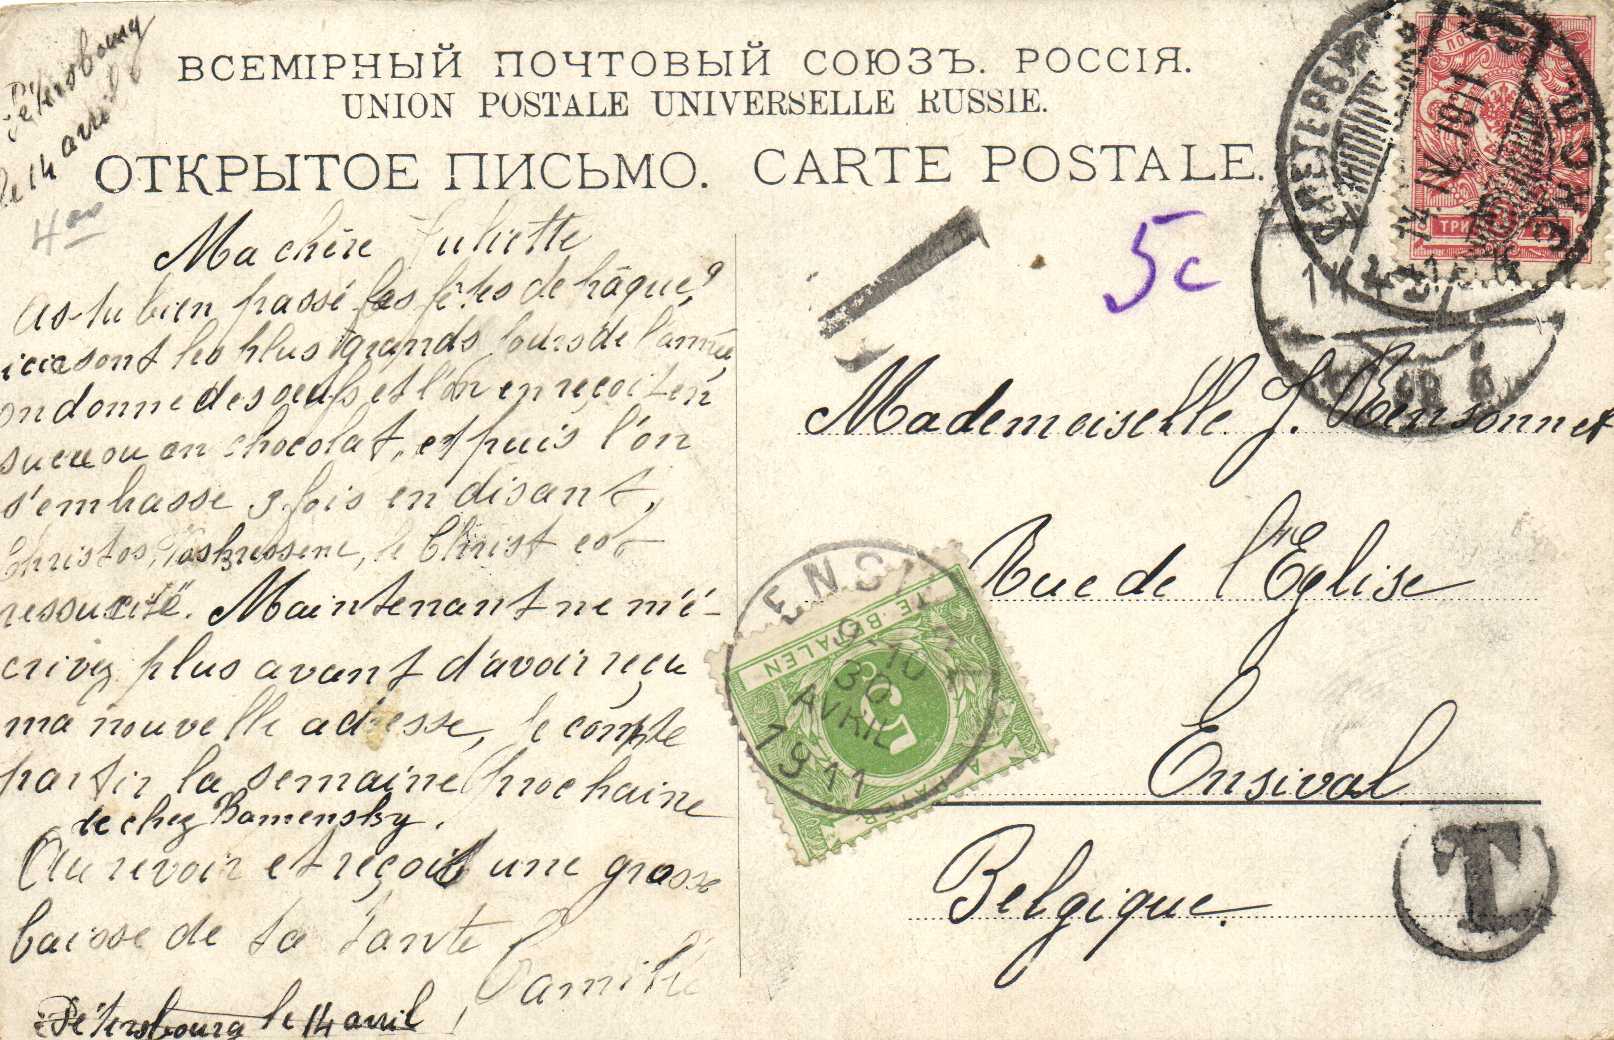 Pétersbourg
le 14 avril
ВСЕМІРНЫЙ ПОЧТОВЫЙ СОЮЗЪ. РОССІЯ.
UNION POSTALE UNIVERSELLE RUSSIE.
ОТКРЫТОЕ ПИСЬМО. CARTE POSTALE.
Ma chère Juliette
as-tu bien passé les fêtes de pâque?
ici ce sont les plus grands jours de l'année,
on donne des oeufs et l'on en reçoit en
sucre ou en chocolat, et puis l'on
s'embrasse 3 fois en disant,
Christos, Voskressene, le Christ est
ressucité. Maintenant ne m'é-
crivez plus avant d'avoir reçu
ma nouvelle adresse, je compte
partir la semaine prochaine
de chez Kamensky.
Au revoir et reçoit une grosse
baisse de ta tante
Camille
Pétersbourg le 14 avril
5c
Mademoiselle J. Rensonnet
Rue de l'Eglise
Ensival
Belgique.
С.ПЕТЕРБУРГЪ
14.IV.1911
ТРИ
ENSIVAL
30
AVRIL
1911
TE BETALEN
5
A PAYER
T